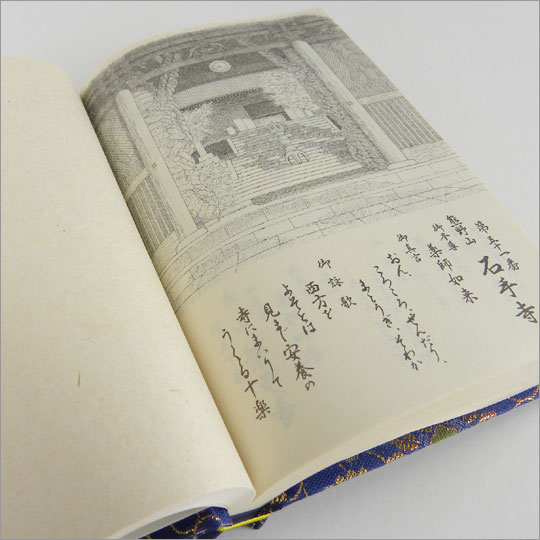 第五十一番
石手寺
熊野山
御本尊
薬師如来
御真言
おん、
ころころ、せんだり、
まとうぎ、そわか
御詠歌
西方を
よそとは
見まじ安養の
寺にまいりて
うくる十楽